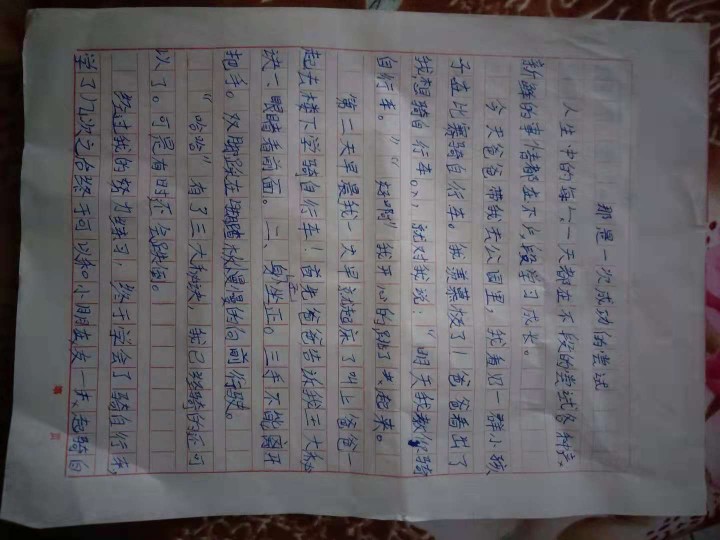 那是一次成功的尝试
人生中的每一天都在不段的尝试各种
新鲜的事情都在不段学习成长。
今天爸爸带我去公园里，我看见一群小孩
子在比赛骑自行车。我羡慕极了！爸爸看出了
我想骑自行车。就对我说：“明天我教你骑
自行车。”“好啊”我开心的跳了起来。
第二天早晨我一大早就起床了叫上爸爸一
起去楼下学骑自行车！首先爸爸告诉我三大秘
诀一、眼睛看前面。二、身坐正。三手不能离开
把手。双脚踏在脚踏慢慢的向前行驶。
“哈哈”有了三大秘诀，我已经骑的还可
以了。可是有时还会跌倒。
经过我的努力练习，终于学会了骑自行车，
学了几次之后终于可以和小朋友一起骑自